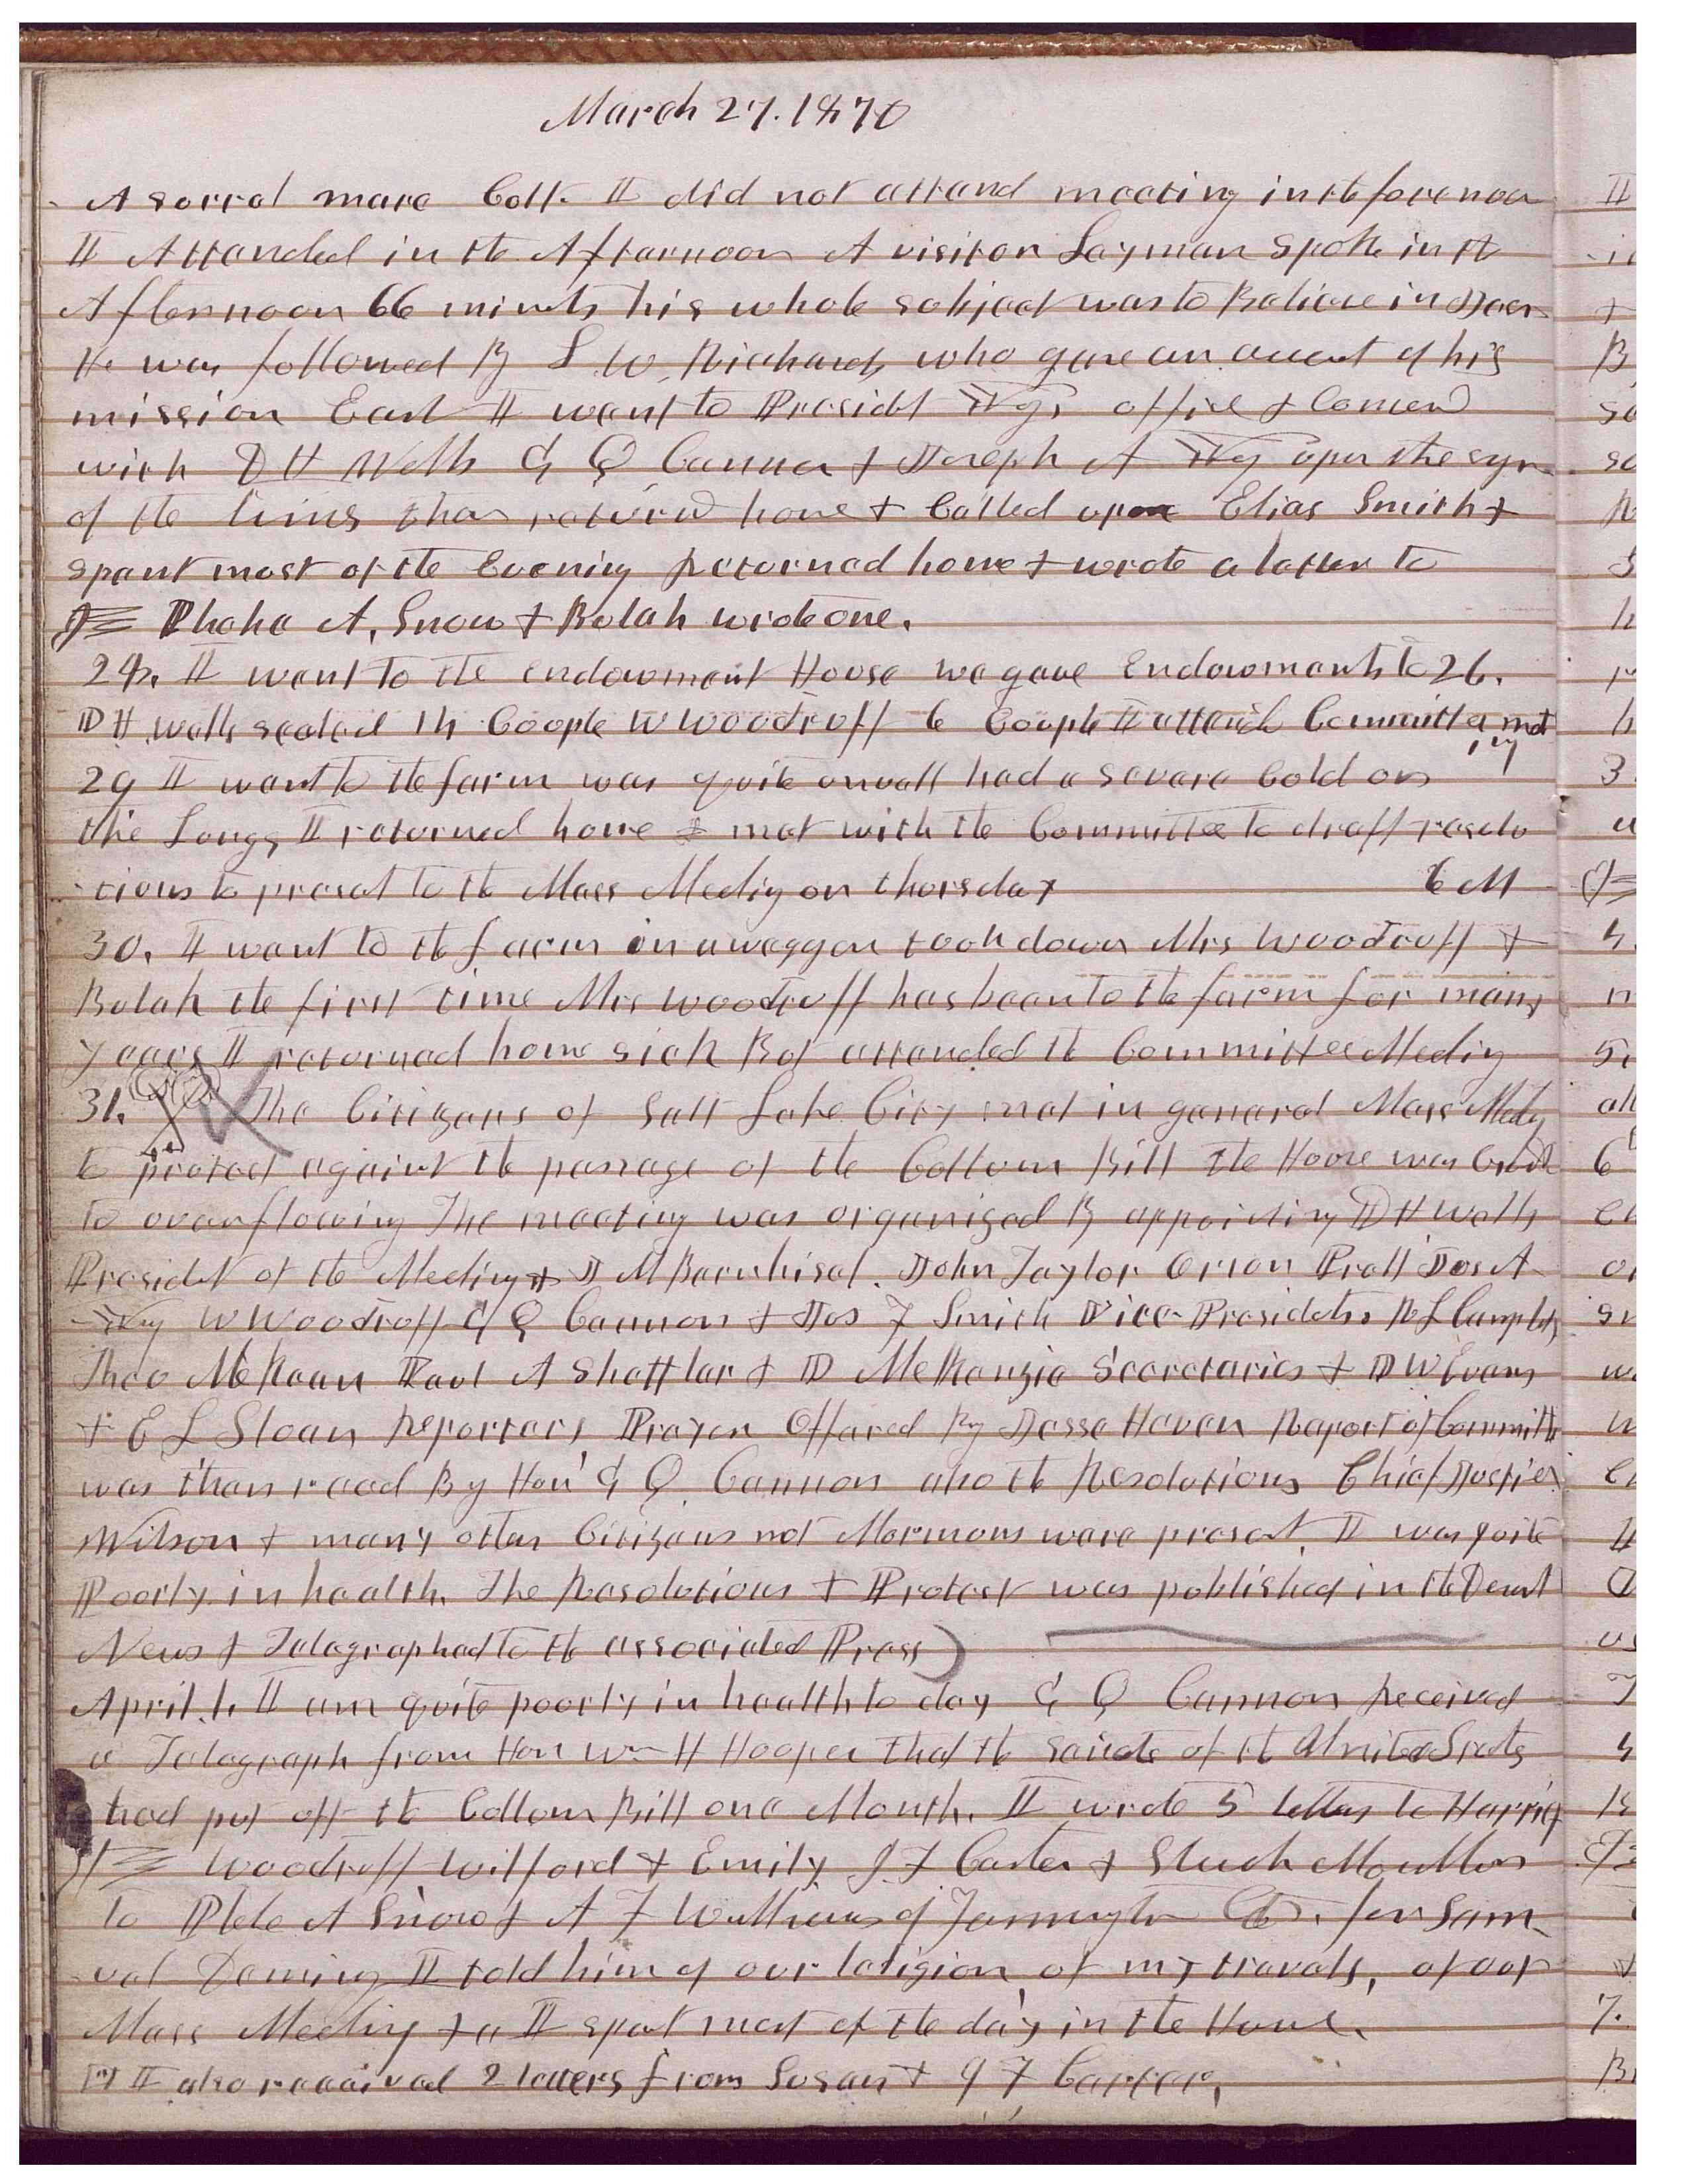 March 27. 1870
A sorrel mare Colt. I did not attend meeting in the forenoon
I Attended in the Afternoon A visitor Layman Spoke in the
Afternoon 66 minuts his whole subject was to Believe in
He was followed By S. W. Richards who gave an account of his
mission East I went to Presidt Yg's office &
with D H Wells G Q Cannon & Joseph A Yg upon the
of the times than returnd home & Called upon Elias Smith &
spent most of the Evening Returned home & wrote a letter to
Phebe A. Snow & Bulah wrote one.
28. I went to the endowment House we gave Endowments to 26.
D H Wells sealed 14 Couple W Woodruff 6 Couple I attend Committee met
ing
29 I went to the farm was quite unwell had a severe Cold on
the Lungs I returned home & met with the Committee to draft resolu
tions to present to the Mass Meeting on thursday 6 M
30. I went to the farm in a waggon took down Mrs Woodruff &
Bulah the first time Mrs Woodruff has been to the farm for many
years I returned home sick But attended the Committee Meeting
31. The Citizens of Salt Lake City met in general Mass Meeting
to protest against the passage of the Collum Bill The House was
to overflowing The meeting was organized By appointing D H Wells
Presidet of the Meeting & J M Bernhisel. John Taylor Orson Pratt Jos A
Yg W Woodruff G Q Cannon & Jos F Smith Vice Presidets. R L Campbell
Theo McKean Paul A Shettler & D McKenzie Secretaries & D W Evans
& E L Sloan Reporters, Prayer Offered By Jesse Haven Report of Committe
was then read By Hon G Q. Cannon also the Resolutions Chief Justice
Wilson & many other Citizens not Mormons were present. I was quite
Poorly in health. The Resolutions & Protest was published in the Desert
News & Telegraphed to the associated Press)
April 1. I am quite poorly in health to day G Q Cannon Received
a Telegraph from Hon Wm H Hooper that the Senate of the United States
had put off the Collum Bill one Month. I wrote 5 letters to Harriet
Woodruff Wilford & Emily I F Carter & Moulton
to Phebe A Snow & A F Williams of Farmington Ct. for Sam-
uel Deming I told him of our religion, of my travels, of our
Mass Meeting &c I spent most of the day in the House.
I also received 2 letters from Susan & I F Carter,